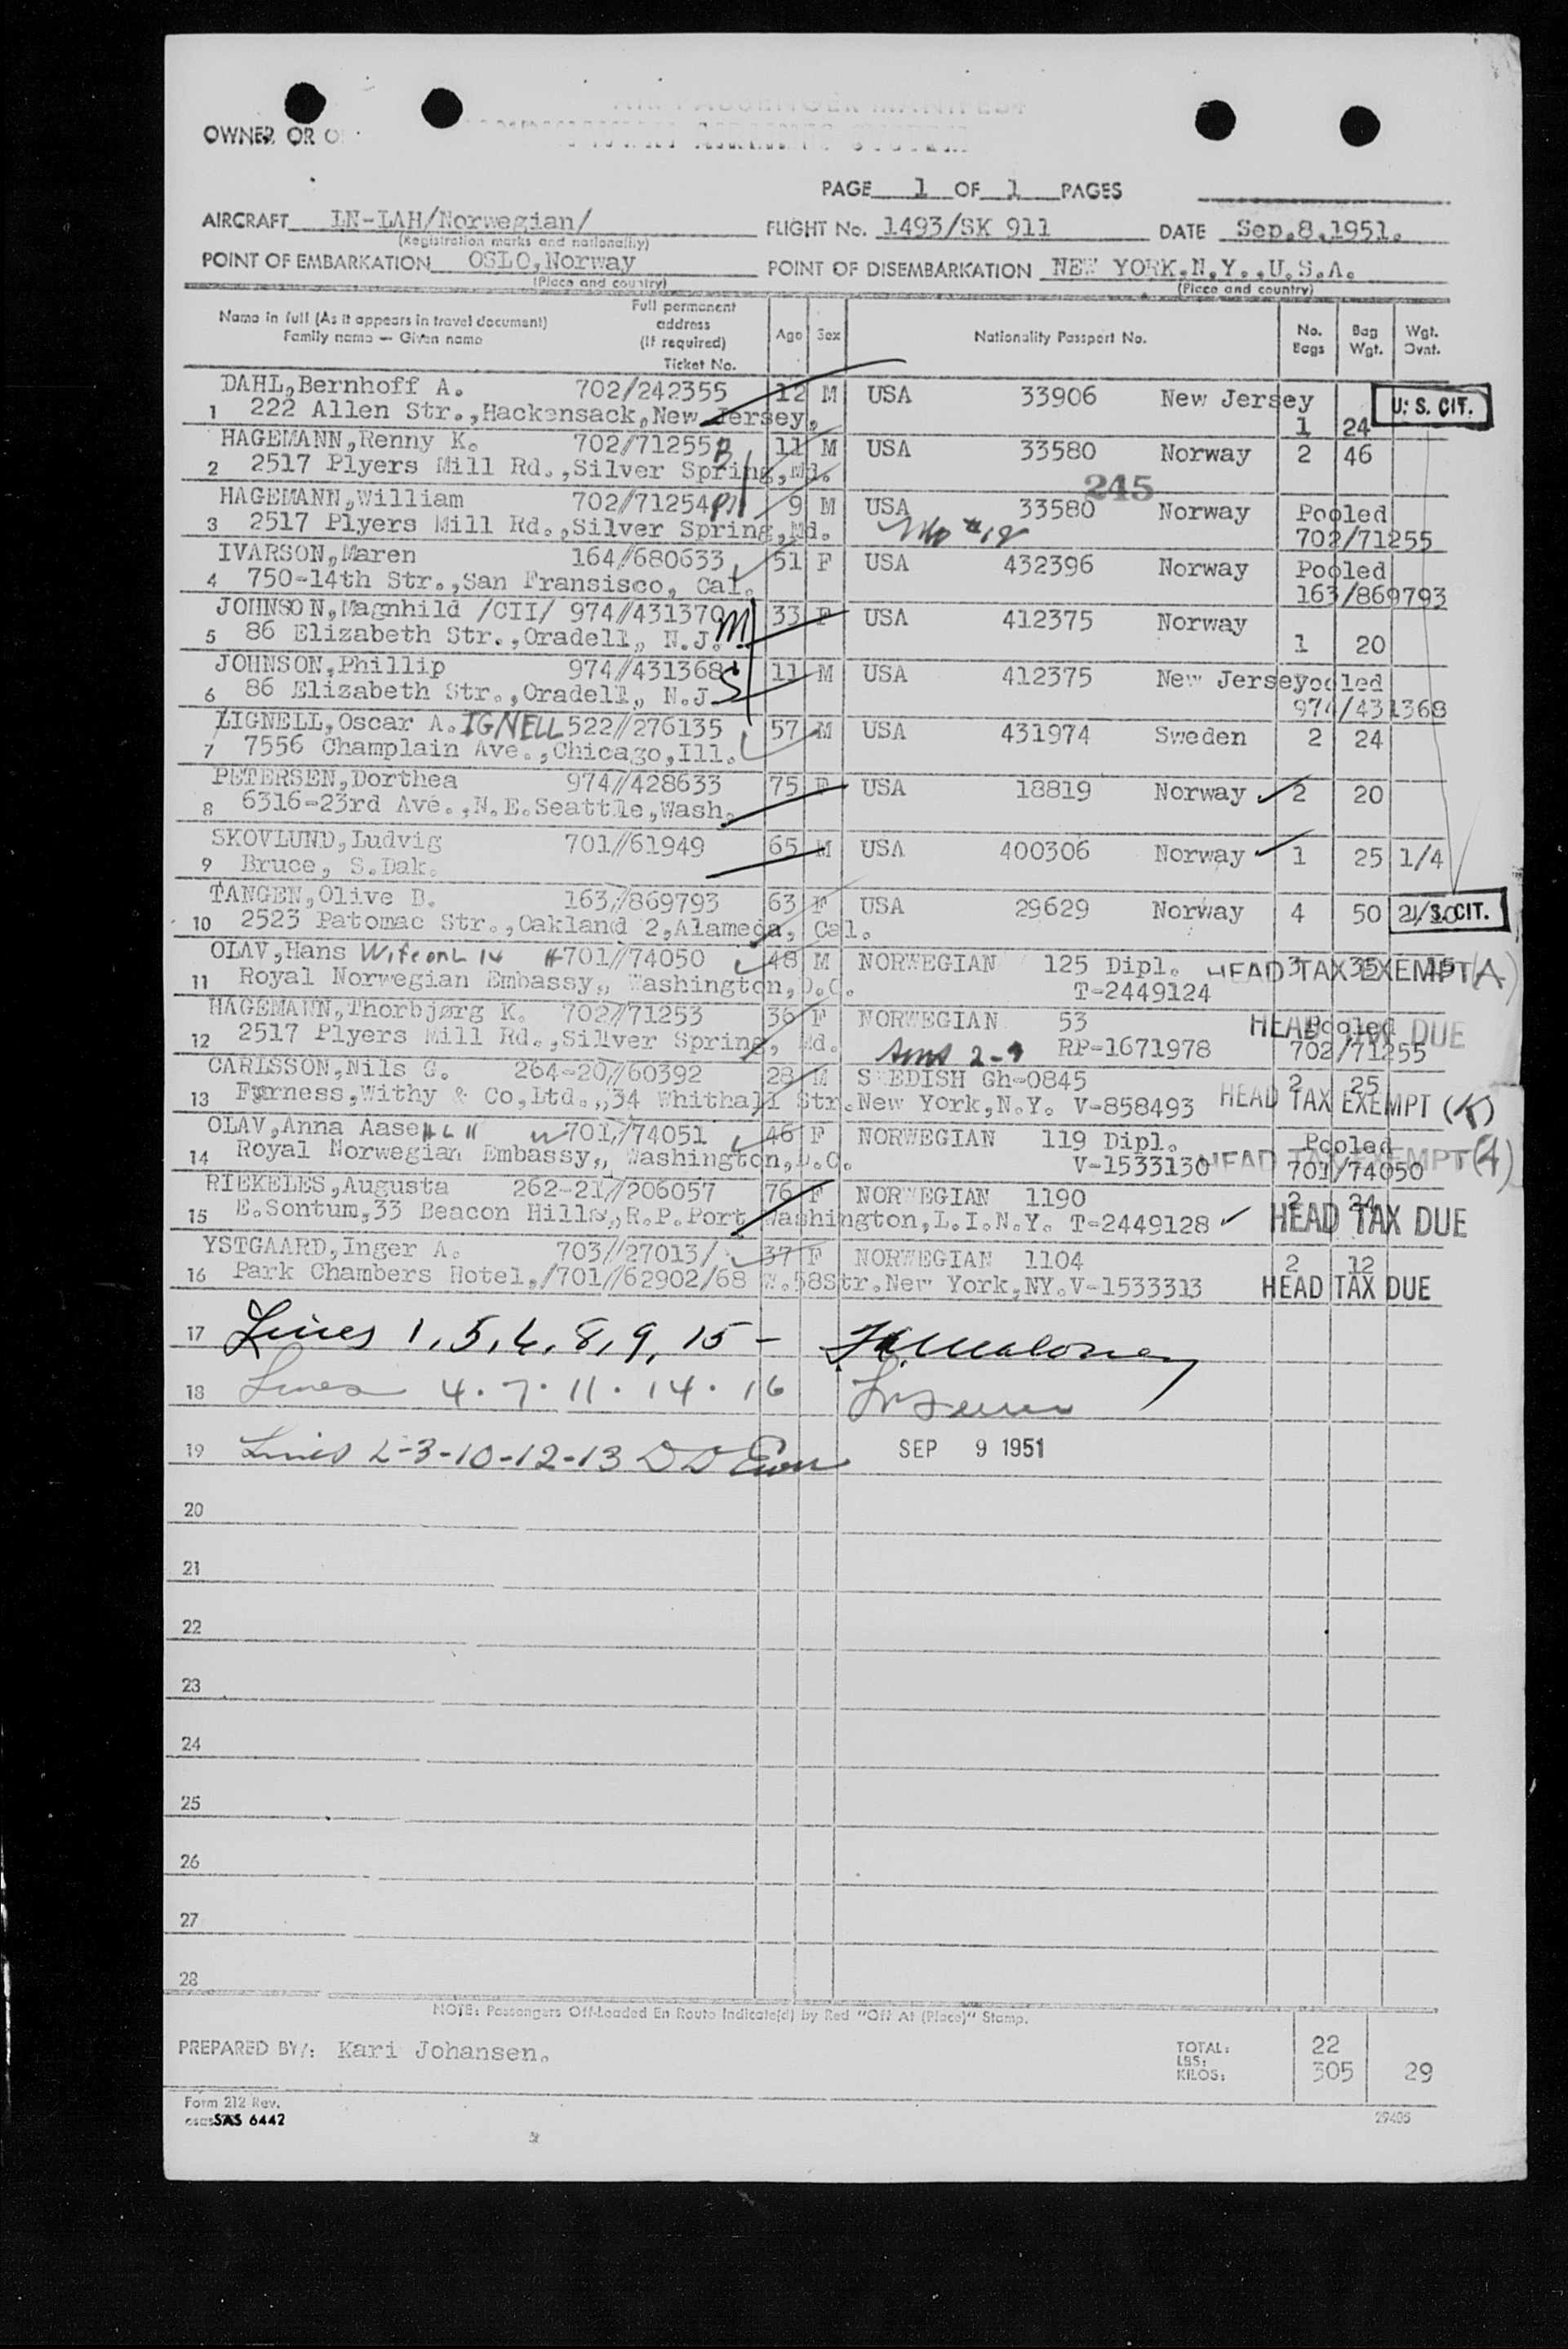 AIR PASSENGER MANIFEST
OWNER OR
PAGE 1 OF 1 PAGES
AIRCRAFT LN-LAH/Norwegian/ FLIGHT No. 1493/SK 911 DATE Sep.8.1951.
(Registration marks and nationality)
POINT OF EMBARKATION OSLO,Norway POINT OF DISEMBARKATION NEW YORK.N.Y.,U.S.A.
(Place and country) (Place and country)
Name in full (As it appears in travel document) Family name — Given name Full permanent address (If required) Ticket No. Age Sex Nationality Passport No. No. Bags Bag Wgt. Wgt. Ovnt.
DAHL,Bernhoff A. 702/242355 12 M USA 33906 New Jersey U. S. CIT.
1 222 Allen Str.,Hackensack,New Jersey. 1 24
HAGEMANN,Renny K. 702/71255 B 11 M USA 33580 Norway 2 46
2 2517 Plyers Mill Rd.,Silver Spring,Md.
245
HAGEMANN,William 702//71254 9 M USA 33580 Norway Pooled
3 2517 Plyers Mill Rd.,Silver Spring,Md. #12 702/71255
IVARSON,Maren 164//680633 51 F USA 432396 Norway Pooled
4 750-14th Str.,San Fransisco, Cal. 163/869793
JOHNSON,Magnhild /CII/ 974//431370 M 33 F USA 412375 Norway
5 86 Elizabeth Str.,Oradell, N.J. 1 20
JOHNSON,Phillip 974//431368 S 11 M USA 412375 New Jersey ooled
6 86 Elizabeth Str.,Oradell, N.J. 974/431368
LIGNELL,Oscar A. IGNELL 522//276135 57 M USA 431974 Sweden 2 24
7 7556 Champlain Ave.,Chicago,Ill.
PETERSEN,Dorthea 974//428633 75 F USA 18819 Norway 2 20
8 6316-23rd Ave.,N.E.Seattle,Wash.
SKOVLUND,Ludvig 701//61949 65 M USA 400306 Norway 1 25 1/4
9 Bruce, S.Dak.
TANGEN,Olive B. 163//869793 63 F USA 29629 Norway 4 50 U. S. CIT.
10 2523 Patomac Str.,Oakland 2,Alameda, Cal.
OLAV,Hans Wife on L 14 701//74050 48 M NORWEGIAN 125 Dipl. 3 35 15 HEAD TAX EXEMPT (A)
11 Royal Norwegian Embassy,, Washington,D.C. T-2449124
HAGEMANN,Thorbjørg K. 702//71253 36 F NORWEGIAN 53 Pooled HEAD TAX DUE
12 2517 Plyers Mill Rd.,Silver Spring, Md. 2-3 RP-1671978 702/71255
CARLSSON,Nils G. 264-20//60392 28 M SWEDISH Gh-0845 2 25
13 Furness,Withy & Co,Ltd.,,34 Whithall Str.New York,N.Y. V-858493 HEAD TAX EXEMPT (K)
OLAV,Anna Aase H L 11 701//74051 46 F NORWEGIAN 119 Dipl. Pooled
14 Royal Norwegian Embassy,, Washington,D.C. V-1533130 HEAD TAX EXEMPT (A) 701/74050
RIEKELES,Augusta 262-21//206057 76 F NORWEGIAN 1190 2 24
15 E.Sontum,33 Beacon Hills,,R.P.Port Washington,L.I.N.Y. T-2449128 HEAD TAX DUE
YSTGAARD,Inger A. 703//27013/ 37 F NORWEGIAN 1104 2 12
16 Park Chambers Hotel,/701//62902/68 W.58Str.New York,NY.V-1533313 HEAD TAX DUE
17 Lines 1, 5, 6, 8, 9, 15 - Maloney
18 Lines 4 . 7 . 11 . 14 . 16
19 Lines 2-3-10-12-13 SEP 9 1951
20
21
22
23
24
25
26
27
28
NOTE: Passengers Off-Loaded En Route Indicate(d) by Red "Off At (Place)" Stamp.
PREPARED BY/: Kari Johansen. TOTAL: 22
LBS:
KILOS: 305 29
Form 212 Rev.
SAS 6442 29405